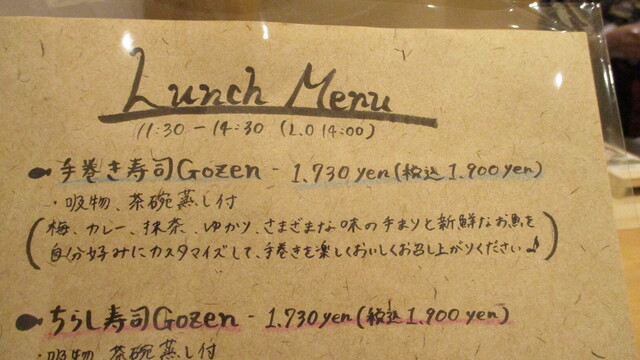 Lunch Menu
11:30 - 14:30 (L.O 14:00)
手巻き寿司Gozen - 1.730 yen (税込 1.900 yen)
・吸物、茶碗蒸し付
(梅、カレー、抹茶、ゆかり、さまざまな味の手まりと新鮮なお魚を
自分好みにカスタマイズして、手巻きを楽しくおいしくお召し上がりください♪)
ちらし寿司Gozen - 1.730 yen (税込 1.900 yen)
・吸物 茶碗蒸し付